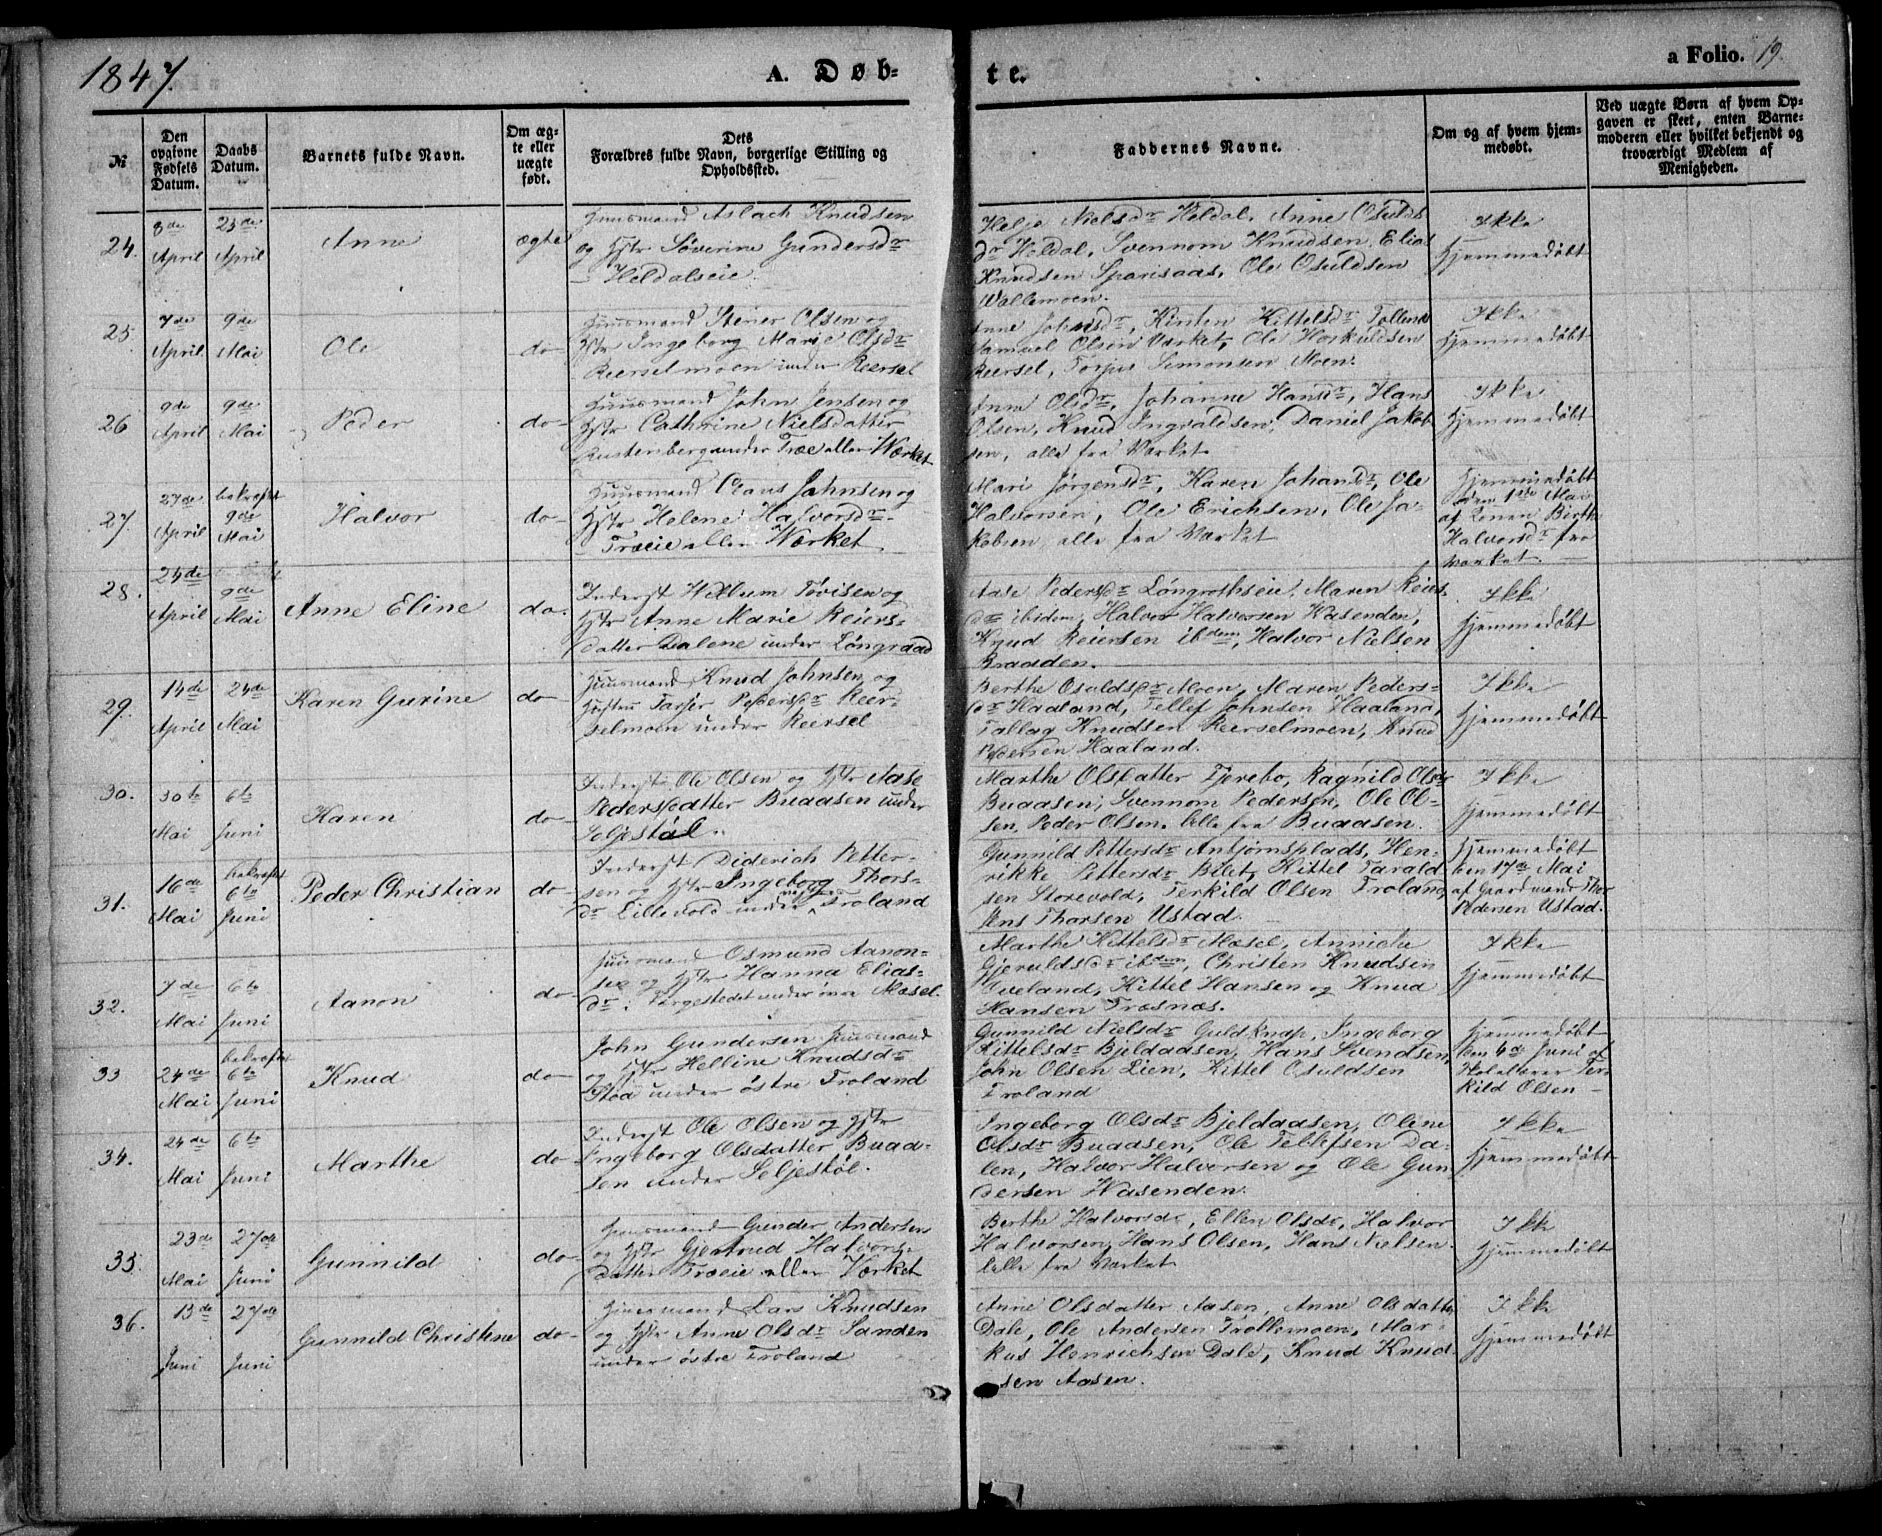 1847.
A. Døb-
te.
a Folio. 19.
№
Den opgivne Fødsels Datum.
Daabs Datum.
Barnets fulde Navn.
Om ægte eller uægte født.
Dets
Forældres fulde Navn, borgerlige Stilling og
Opholdssted.
Faddernes Navne.
Om og af hvem hjem-
medøbt.
Ved uægte Børn af hvem Op-
gaven er skeet, enten Barne-
moderen eller hvilket bekjendt og
troværdigt Medlem af
Menigheden.
24.
8de April
25de April
Anne
ægte
Huusmand Aslach Knudsen
og Hstr Søverine Gundersdr
Heldalseie
Helje Nielsdr Heldal, Anne Osulds
dr Heldal, Svennom Knudsen, Elias
Knudsen Sparisaas, Ole Osuldsen
Vallemoen.
Ikke
hjemmedøbt
25
7de April
9de Mai
Ole
do
Huusmand Stener Olsen og
Hstr Ingeborg Marie Olsdr
Reierselmoen under Reiersel
Anne Johnsdr, Kirsten Kittelsdr
Samuel Olsen Værket, Ole Hoskuldsen
Reiersel, Torjus Simonsen Moen.
Ikke
hjemmedøbt
26
9de April
9de Mai
Peder
do
Huusmand John Jensen og
Hstr Cathrine Nielsdatter
under Træe eller Værket
Anne Olsdr, Johanne Hansdr, Hans
Olsen, Knud Ingvaldsen, Daniel Jakob
sen, alle fra Værket
Ikke
hjemmedøbt
27.
27de April
bekræftet 9de Mai
Halvor
do
Huusmand Claus Jahnsen og
Hstr Helene Halvorsdr
Træeie eller Værket
Mari Jørgensdr, Karen Johansdr, Ole
Halvorsen, Ole Erichsen, Ole Ja-
kobsen, alle fra Værket
Hjemmedøbt
den 1ste Mai
af Konen Birthe
Halvorsdr fra
Værket.
28.
24de April
9de Mai
Anne Eline
do.
Inderst Willum Tovisen og
Hstr Anne Marie Reiers-
datter Dalene under Løngraad
Aase Pedersdr Løngrothseie, Maren Reiers
dr ibidem, Halvor Halvorsen Vasenden,
Knud Reiersen ibdem, Halvor Nielsen
Braaden.
Ikke
hjemmedøbt
29.
14de April
24de Mai
Karen Gurine
do
Huusmand Knud Johnsen og
Hustru Tarjer Pedersdr Reier-
selmoen under Reiersel
Berthe Osuldsdr Moen, Maren Peders-
dr Haaland, Tellef Johnsen Haaland,
Tallag Knudsen Reierselmoen, Knud
Pedersen Haaland.
Ikke
hjemmedøbt
30.
30te Mai
6te Juni
Karen
do
Inderst Ole Olsen og Hstr Aase
Pedersdatter Buaasen under
Seljestøl.
Marthe Olsdatter Tjerebo, Ragnild Olsdr
Buaasen, Svennom Pedersen, Ole Ol-
sen, Peder Olsen. alle fra Buaasen.
Ikke
hjemmedøbt
31.
16de Mai
bekræftet 6te Juni
Peder Christian
do
Inderst Diderich Petter-
sen og Hstr Ingeborg Thors-
dr Lillevold under vestre Froland
Gunnild Pettersdr Anbjørnsplads, Hen-
rikke Pettersdr Bilet, Kittel Tarald
sen Storevold, Terkild Olsen Froland,
Jens Thorsen Ustad.
Hjemmedøbt
den 17de Mai
af Gaardmand Thor
Pedersen Ustad.
32.
7de Mai
6te Juni
Aanon
do
Huusmand Osmund Aanon-
sen og Hstr Hanna Elias-
dr. under Mæsel.
Marthe Kittelsdr Mæsel, Annichen
Gjeruldsdr ibdem, Christen Knudsen
Oveland, Kittel Hansen og Knud
Hansen Trøsnæs.
Ikke
hjemmedøbt
33
24de Mai
bekræftet 6te Juni
Knud
do
John Gundersen Huusmand
og Hstr Helline Knudsdr
Støa under østre Froland
Gunnild Nielsdr Guldknap, Ingeborg
Kittelsdr Bjeldaasen, Hans Svendsen,
John Olsen Lien, Kittel Osuldsen
Froland
Hjemmedøbt
den 4de Juni af
Ter-
kild Olsen
34.
24de Mai
6te Juni
Marthe
do
Inderst Ole Olsen og Hstr
Ingeborg Olsdatter Buaa-
sen under Seljestøl.
Ingeborg Olsdr Bjeldaasen, Oline
Olsdr Buaasen, Ole Tellefsen Da-
len, Halvor Halvorsen og Ole Gun
dersen Wasenden.
Ikke
hjemmedøbt
35.
23de Mai
27de Juni
Gunnild
do
Huusmand Gunder Andersen
og Hstr Gjertrud Halvors-
datter Træeie eller Værket
Berthe Halvorsdr, Ellen Olsdr, Halvor
Halvorsen, Hans Olsen, Hans Nielsen
alle fra Værket
Ikke
hjemmedøbt
36.
13de Juni
27de Juni
Gunnild Christine
do
Huusmand Lars Knudsen
og Hstr Anne Olsdr Sanden
under østre Froland
Anne Olsdatter Aasen, Anne Olsdatter
Dale, Ole Andersen Trollemoen, Mar-
kus Henrichsen Dale, Knud Knud-
sen Aasen.
Ikke
hjemmedøbt